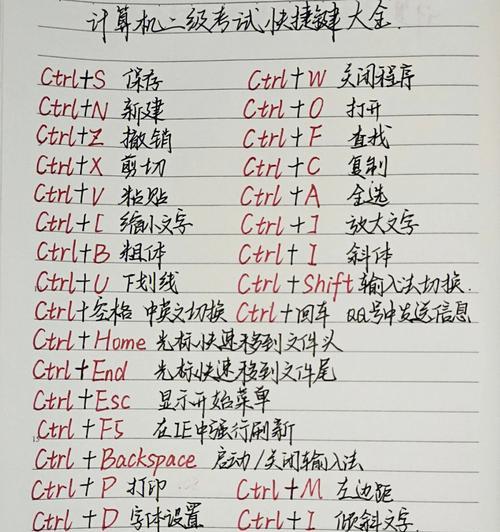 计算机二级考试快捷键大全.
Ctrl+S 保存 Ctrl+W 关闭程序
Ctrl+N 新建 Ctrl+O 打开
Ctrl+Z 撤销 Ctrl+F 查找
Ctrl+X 剪切 Ctrl+C 复制
Ctrl+V 粘贴 Ctrl+A 全选
Ctrl+[ 缩小文字 Ctrl+] 放大文字
Ctrl+B 粗体 Ctrl+I 斜体
Ctrl+U 下划线 Ctrl+Shift 输入法切换.
Ctrl+空格 中英文切换 Ctrl+回车 QQ号中发送信息
Ctrl+Home 光标快速移到文件头
Ctrl+End 光标快速移到文件尾
Ctrl+Esc 显示开始菜单
Ctrl+F5 在IE中强行刷新
15
Ctrl+Backspace 启动/关闭输入法
Ctrl+P 打印 Ctrl+M 左边距
Ctrl+D 字体设置 Ctrl+I 倾斜文字.